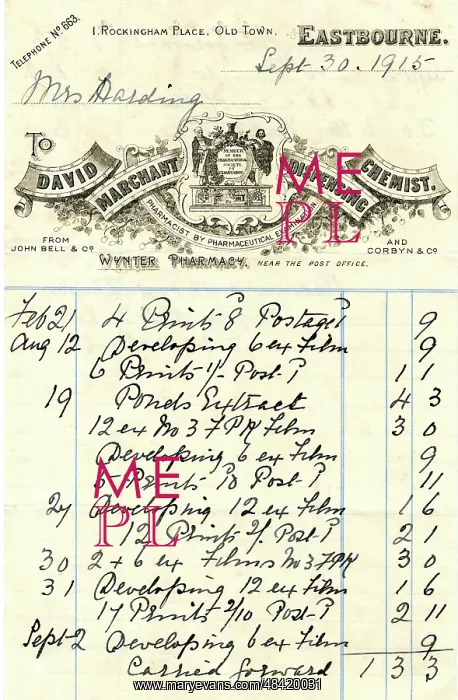 TELEPHONE Nº 663.
1, ROCKINGHAM PLACE, OLD TOWN, EASTBOURNE.
Sept 30. 1915
Mrs Harding
To
DAVID MARCHANT DISPENSING CHEMIST.
MEMBER OF THE PHARMACEUTICAL SOCIETY OF GREAT BRITAIN
PHARMACIST BY PHARMACEUTICAL
FROM JOHN BELL & Cº
AND CORBYN & Cº
WYNTER PHARMACY. NEAR THE POST OFFICE.
ME
PL
Feb 21 4 Prints 8 Postage 1 9
Aug 12 Developing 6 ex Film 9
6 Prints 1/- Post 1 1 1
19 Ponds Extract 4 3
12 ex No 3 FPK Film 3 0
Developing 6 ex Film 9
5 Prints 10 Post 1 11
ME
PL
27 Developing 12 ex Film 1 6
12 Prints 2/. Post 1 2 1
30 2 + 6 ex Films No 3 FPK 3 0
31 Developing 12 ex Film 1 6
17 Prints 2/10 Post 1 2 11
Sept 2 Developing 6 ex Film 9
Carried forward 1 3 3
www.maryevans.com/48420031